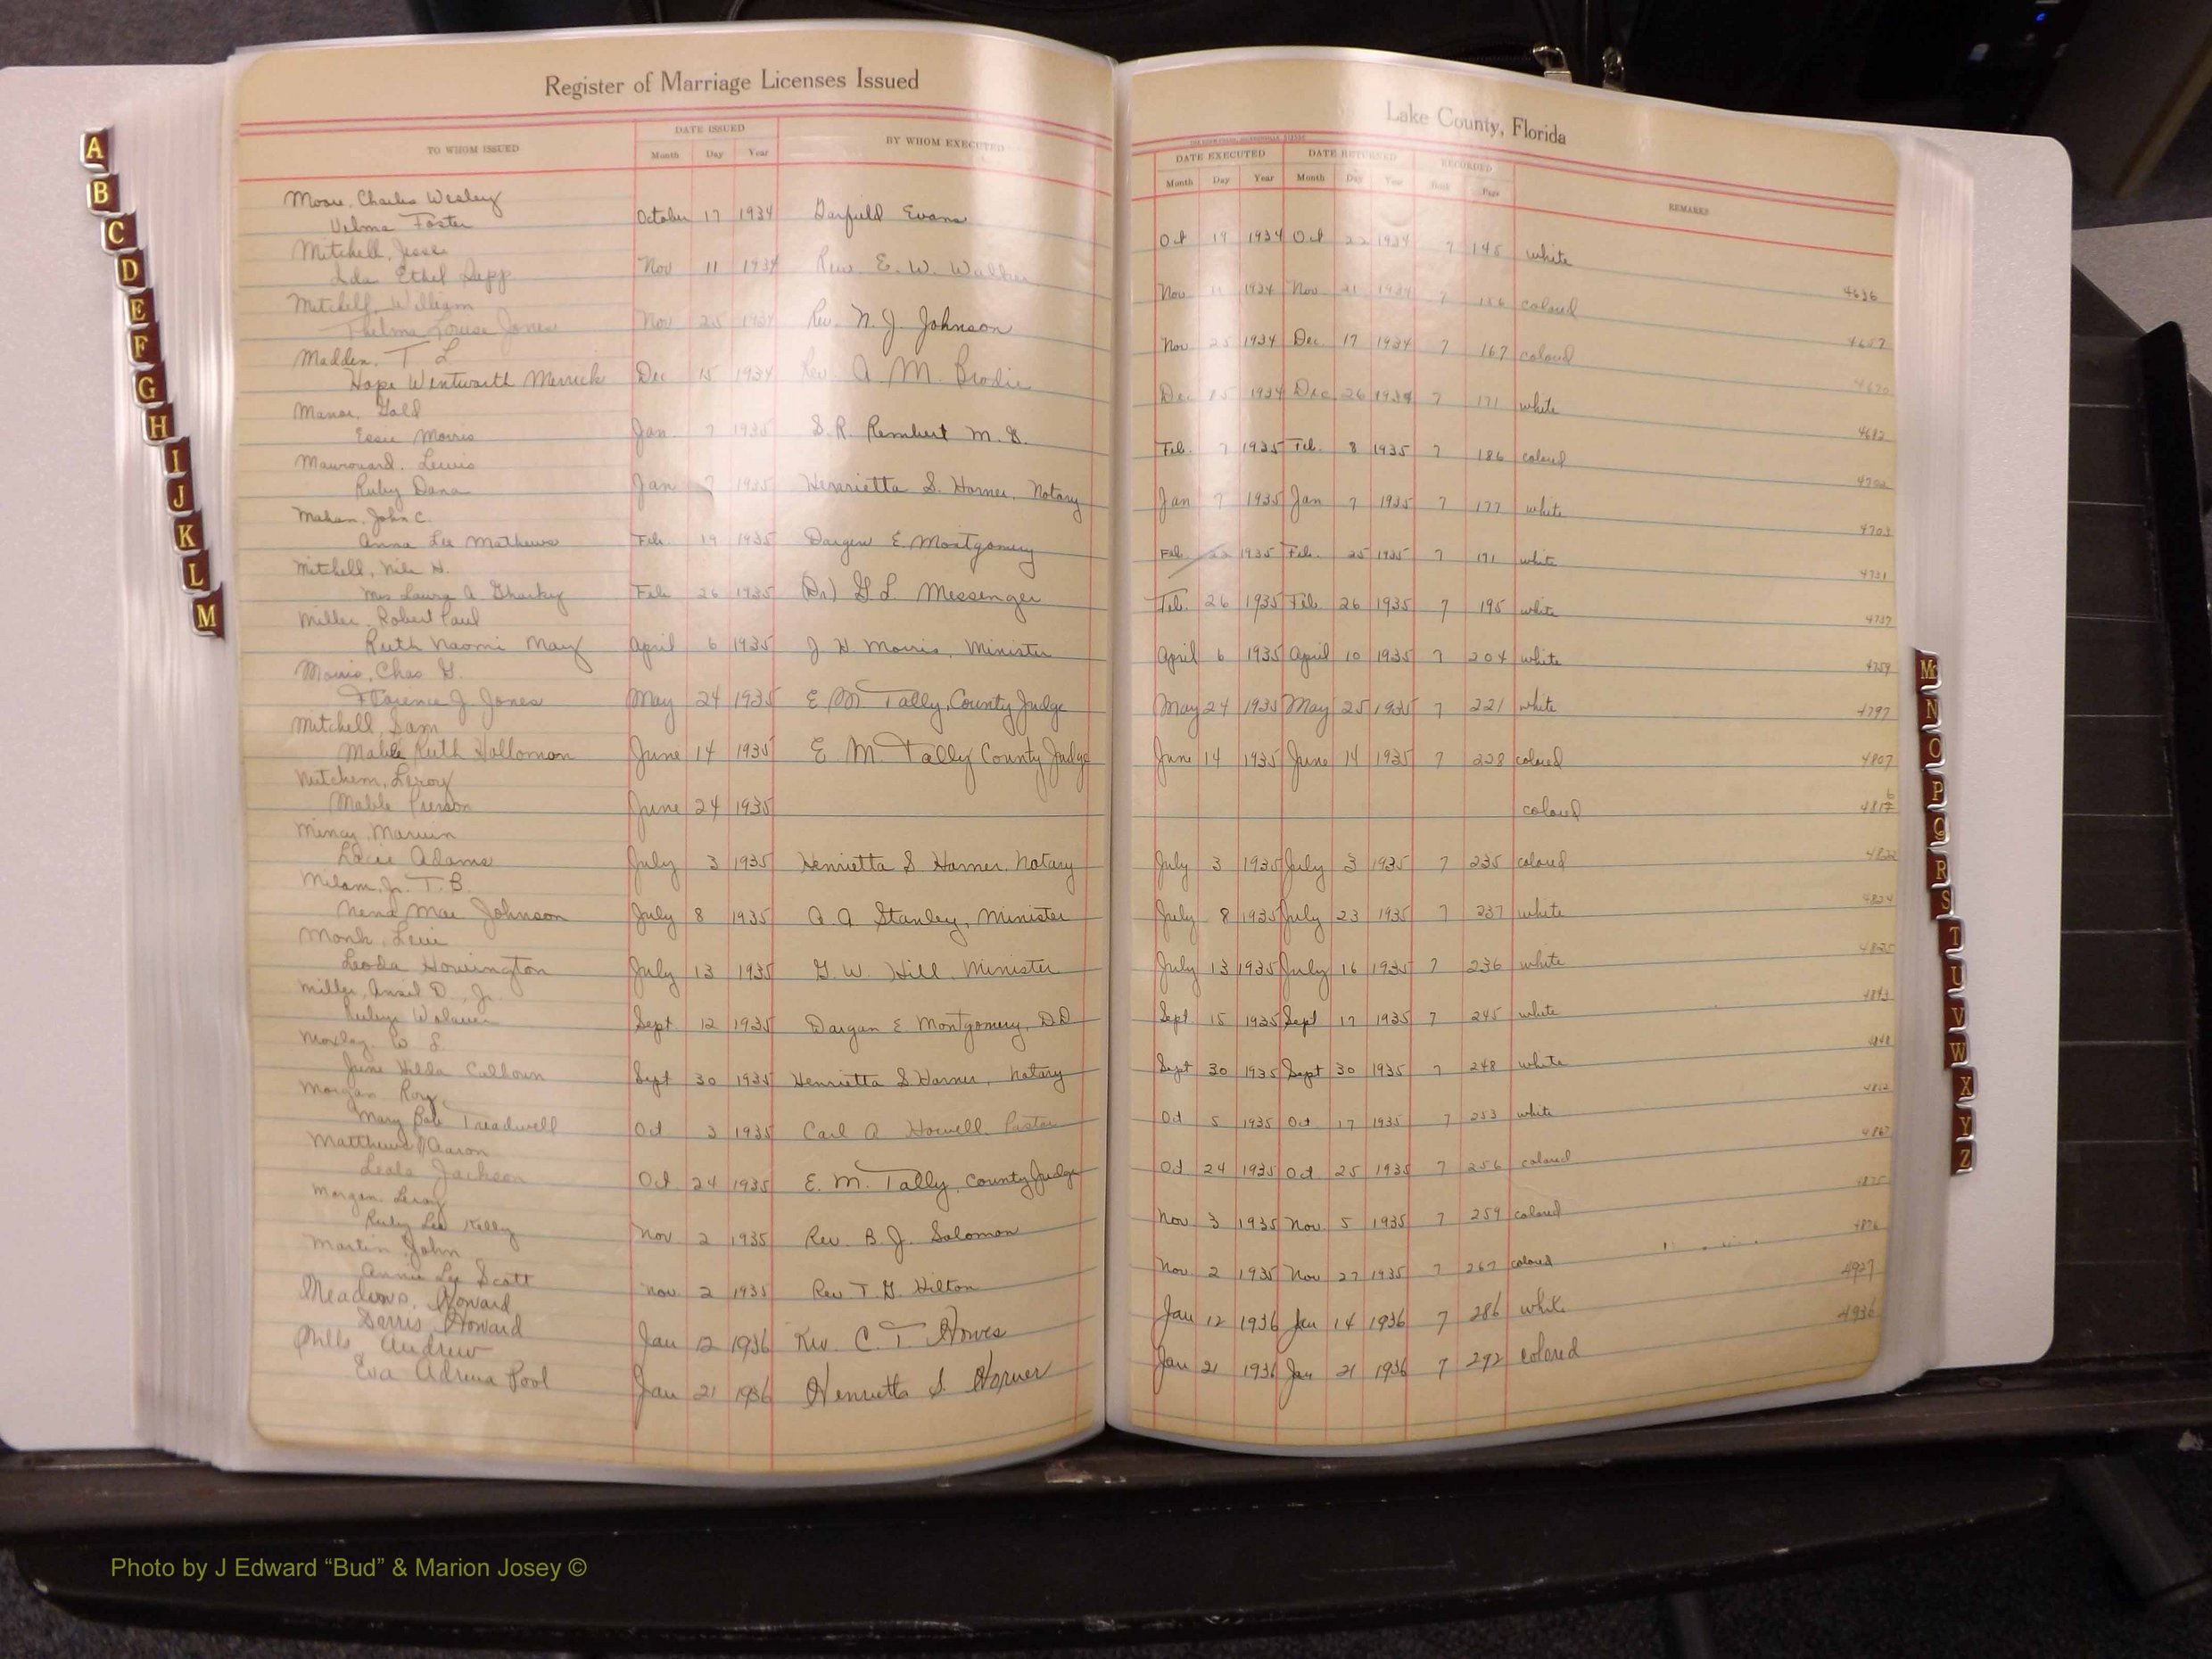 Register of Marriage Licenses Issued
Lake County, Florida
TO WHOM ISSUED
DATE ISSUED
Month Day Year
BY WHOM EXECUTED
DATE EXECUTED
Month Day Year
DATE RETURNED
Month Day Year
RECORDED
Book Page
REMARKS
Moore, Charles Wesley
Velma Foster October 17 1934 Garfield Evans Oct 19 1934 Oct 22 1934 7 145 white 4636
Mitchell, Jesse
Ida Ethel Nov 11 1934 Rev. E. W. Walker Nov 11 1934 Nov 21 1934 7 156 colored 4657
Mitchell, William
Thelma Louise Jones Nov 25 1934 Rev. N. J. Johnson Nov 25 1934 Dec 17 1934 7 167 colored 4670
Madden, T L
Hope Wentworth Merrick Dec 15 1934 Rev. A. M. Brodie Dec 15 1934 Dec 26 1934 7 171 white 4682
Manor, Gold
Essie Morris Jan 7 1935 S. R. Rembert M. G. Feb. 7 1935 Feb. 8 1935 7 186 colored
Lewis
Ruby Dana Jan 7 1935 Henrietta S. Horner, Notary Jan 7 1935 Jan 7 1935 7 177 white 4703
Mahan, John C.
Anna Lee Mathews Feb. 19 1935 Dargan E. Montgomery Feb 22 1935 Feb. 25 1935 7 white 4731
Mitchell, H.
Mrs Laura A Feb 26 1935 (Dr) G L Messenger Feb. 26 1935 Feb. 26 1935 7 195 white 4737
Miller, Robert Paul
Ruth Naomi May April 6 1935 J H. Morris, Minister April 6 1935 April 10 1935 7 204 white 4759
Morris, Chas G.
Florence J. Jones May 24 1935 E M Tally, County Judge May 24 1935 May 25 1935 7 221 white 4797
Mitchell, Sam
Mable Ruth Holloman June 14 1935 E. M. Tally County Judge June 14 1935 June 14 1935 7 228 colored 4807
Mitchem, Leroy
Mable Pierson June 24 1935 colored
Mincy, Marvin
Adams July 3 1935 Henrietta S Horner, Notary July 3 1935 July 3 1935 7 235 colored 4822
Milam, Jr. T. B.
Nena Mae Johnson July 8 1935 A. A. Stanley, Minister July 8 1935 July 23 1935 7 237 white 4824
Monk, Levi
Leoda Howington July 13 1935 G. W. Hill, Minister July 13 1935 July 16 1935 7 236 white 4825
Miller, Ansel D., Jr.
Sept 12 1935 Dargan E Montgomery, DD Sept 15 1935 Sept 17 1935 7 245 white 4843
Moxley, W S.
June Hilda Calhoun Sept 30 1935 Henrietta S Horner, Notary Sept 30 1935 Sept 30 1935 7 248 white 4848
Morgan Roy
Mary Bob Treadwell Oct 2 1935 Carl A Howell, Pastor Oct 5 1935 Oct 17 1935 7 253 white
Matthews, Aaron
Leola Jackson Oct 24 1935 E. M. Tally, County Judge Oct 24 1935 Oct 25 1935 7 256 colored 4867
Morgan, Leroy
Ruby Lee Kelly Nov 2 1935 Rev. B. J. Solomon Nov 3 1935 Nov 5 1935 7 259 colored 4875
Martin, John
Annie Lee Scott Nov 2 1935 Rev T. G. Hilton Nov 2 1935 Nov 27 1935 7 267 colored 4876
Meadows, Howard
Howard Jan 12 1936 Rev. C. T. Howes Jan 12 1936 Jan 14 1936 7 286 white 4927
Mills Andrew
Eva Adrena Pool Jan 21 1936 Henrietta S. Horner Jan 21 1936 Jan 21 1936 7 292 colored 4936
A
B
C
D
E
F
G
H
I
J
K
L
M
Mc
N
O
P
Q
R
S
T
U
V
W
X
Y
Z
Photo by J Edward “Bud” & Marion Josey ©